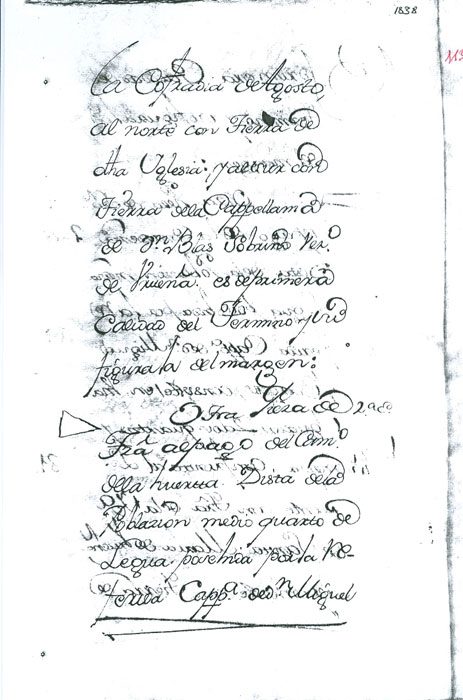 1838
113
La Cofradia de Agosto,
al norte con Tierra de
dha Yglesia: y al sur con
Tierra de la Cappellania
de Dn. Blas Sobrino Vez.o
de Urueña: es de primera
Calidad del Termino y su
figura la del margen:
Otra Pieza de
Trã al pago del Cam.o
de la huerta Dista de la
Poblazion medio quarto de
Legua posehida por la Re-
ferida Capp.a de Dn. Miguel